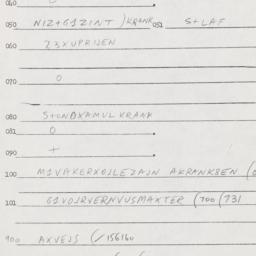 040
050 NIZ+G1ZINT )KRANK 051 S+LAF
060 23XUPRIJEN
070 0
080 S+ONDXAMUL KRANK
081 0
090 +
100 M1VAKERXOJLEZAJN AKRANKSEN (
101 G1VOJRVERNVUSMAXTER (700 (731
900 AXVEJS (/156160